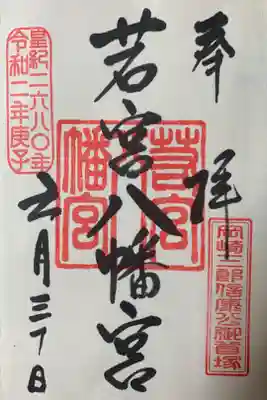 奉拝
岡崎三郎信康公御首塚
若宮八幡宮
若宮
幡宮
皇紀二六八〇年
令和二年庚子
月三十日